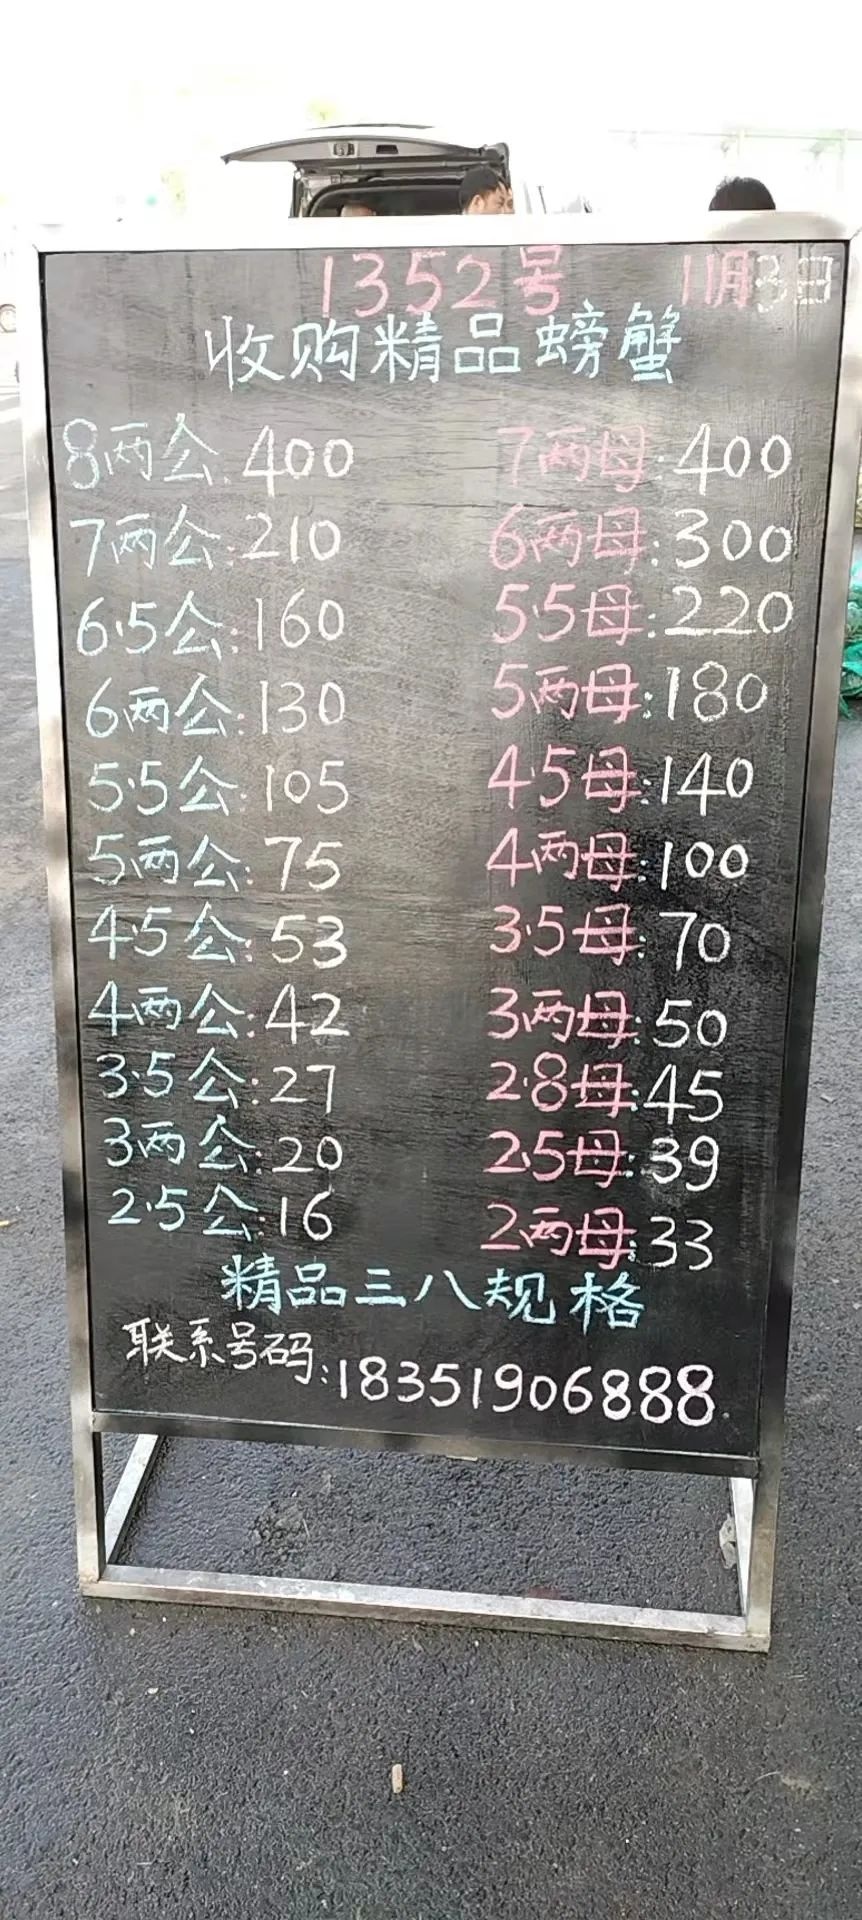 1352号 11月3日
收购精品螃蟹
8两公:400 7两母:400
7两公:210 6两母:300
6.5公:160 5.5母:220
6两公:130 5两母:180
5.5公:105 4.5母:140
5两公:75 4两母:100
4.5公:53 3.5母:70
4两公:42 3两母:50
3.5公:27 2.8母:45
3两公:20 2.5母:39
2.5公:16 2两母:33
精品三八规格
联系号码:18351906888